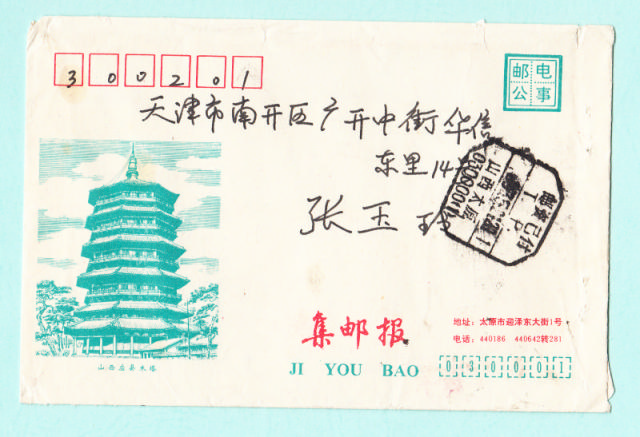 300201
邮电
公事
天津市南开区广开中街华信
东里14
张玉
邮资已付
山西太原
030900
山西应县木塔
集邮报
JI YOU BAO
地址：太原市迎泽东大街1号
电话：440186 440642转281
030001